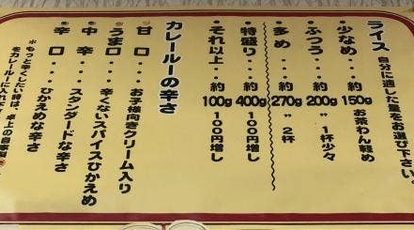 ライス 自分に適した量をお選び下さい。
少なめ・・・約150g お茶わん軽め
ふつう・・・約200g 〃 1杯少々
多め・・・約270g 〃 2杯
特盛り・・・約400g 100円増し
それ以上・・約100g 100円増し
カレールーの辛さ
甘口・・・お子様向きクリーム入り
うま口・・・辛くないスパイスひかえめ
中辛・・・スタンダードな辛さ
辛口・・・ひかえめな辛さ
*もっと辛くしたい時は、卓上の自家製
をカレールーに入れ